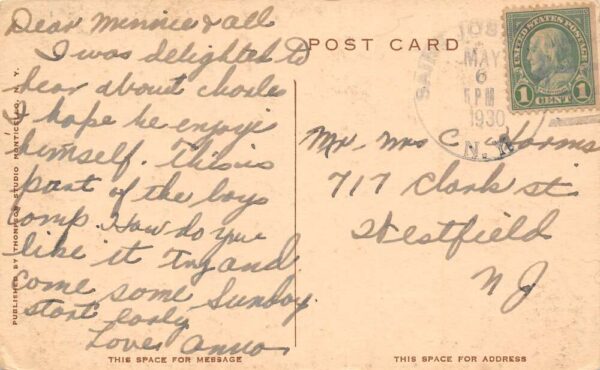 Dear Minnie & all
I was delighted to
hear about Charles
I hope he enjoys
himself. This is
part of the boys
camp. How do you
like it Try and
come some Sunday.
start early
Love Anna
THIS SPACE FOR MESSAGE
PUBLISHED BY THOMPSON STUDIO MONTICELLO, N. Y.
POST CARD
MAY
6
5 PM
1930
N.Y.
UNITED STATES POSTAGE
FRANKLIN
1 CENT 1
Mr. Mrs C. Harms
717 Clark st
Westfield
N J
THIS SPACE FOR ADDRESS